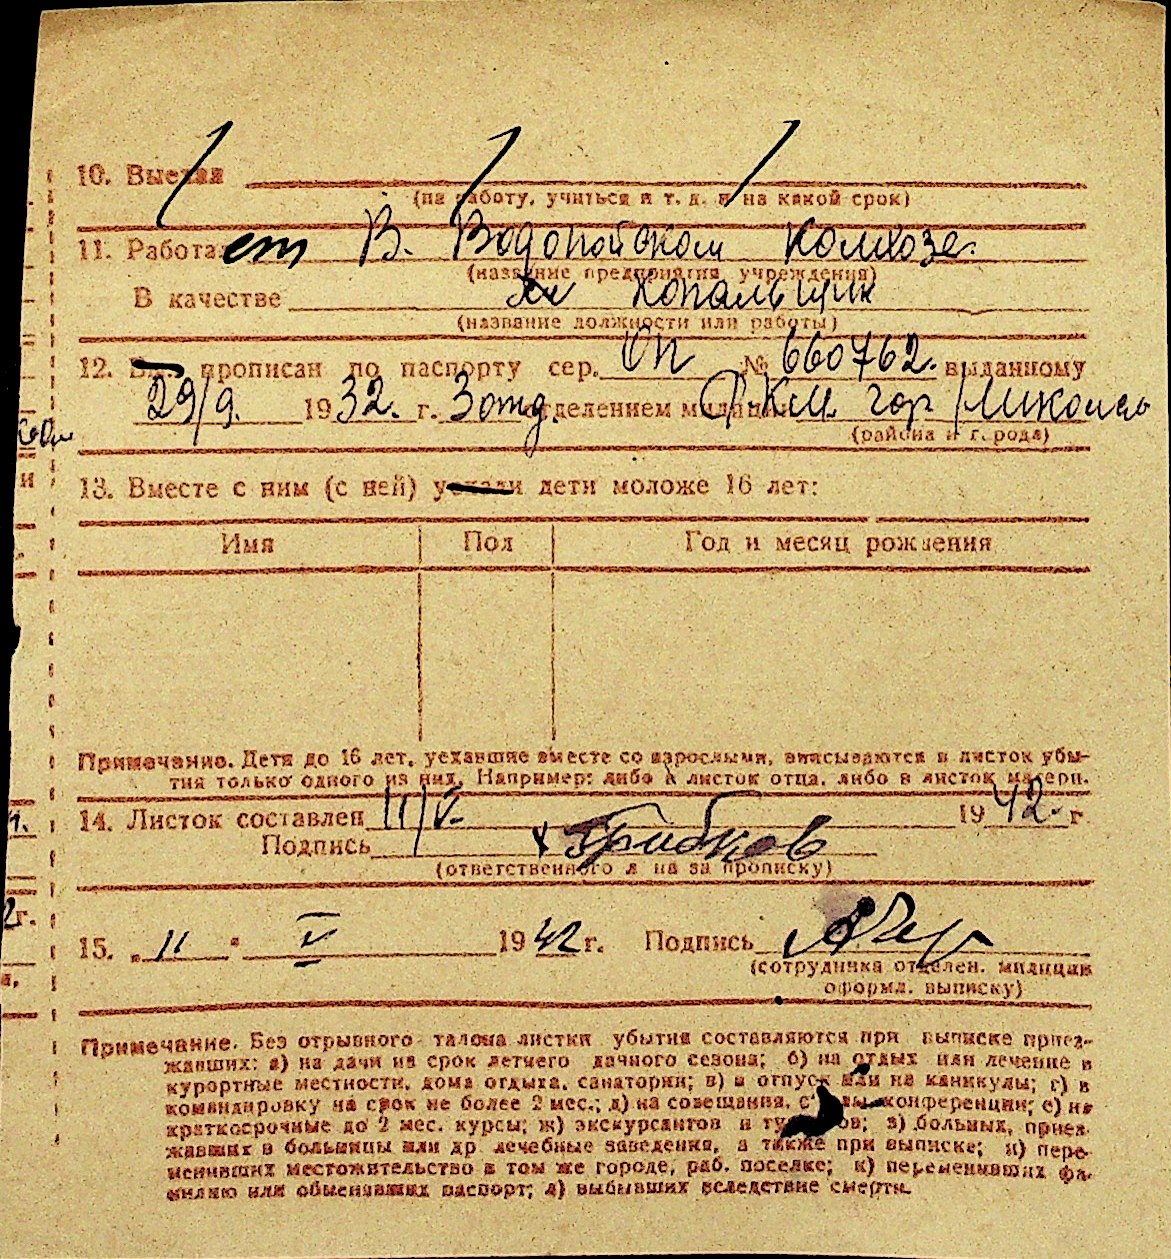 10. Выехал
(на работу, учиться и т. д. и на какой срок)
11. Работает В. Водопойском колхозе.
(название предприятия, учреждения)
В качестве копальщик
(название должности или работы)
12. прописан по паспорту сер. № 660762. выданному
29/9. 1932. г. 3 отд. отделением милиции Р.К.М. гор
(района и города)
13. Вместе с ним (с ней) уехали дети моложе 16 лет:
Имя Пол Год и месяц рождения
Примечание. Дети до 16 лет, уехавшие вместе со взрослыми, вписываются в листок убы-
тия только одного из них. Например: либо в листок отца, либо в листок матери.
14. Листок составлен 11/V. 1942. г
Подпись Грибков
(ответственного л на за прописку)
2г.
15. „ 11 " V 1942 г. Подпись
(сотрудника отделен. милиции
оформл. выписку)
Примечание. Без отрывного талона листки убытия составляются при выписке приез-
жавших: а) на дачи на срок летнего дачного сезона; б) на отдых или лечение в
курортные местности, дома отдыха, санатории; в) в отпуск или на каникулы; г) в
командировку на срок не более 2 мес.; д) на совещания, съезды, конференции; е) на
краткосрочные до 2 мес. курсы; ж) экскурсантов и туристов; з) больных, приез-
жавших в больницы или др лечебные заведения, а также при выписке; и) пере-
менивших местожительство в том же городе, раб. поселке; к) переменивших фа-
милию или обменявших паспорт; л) выбывших вследствие смерти.